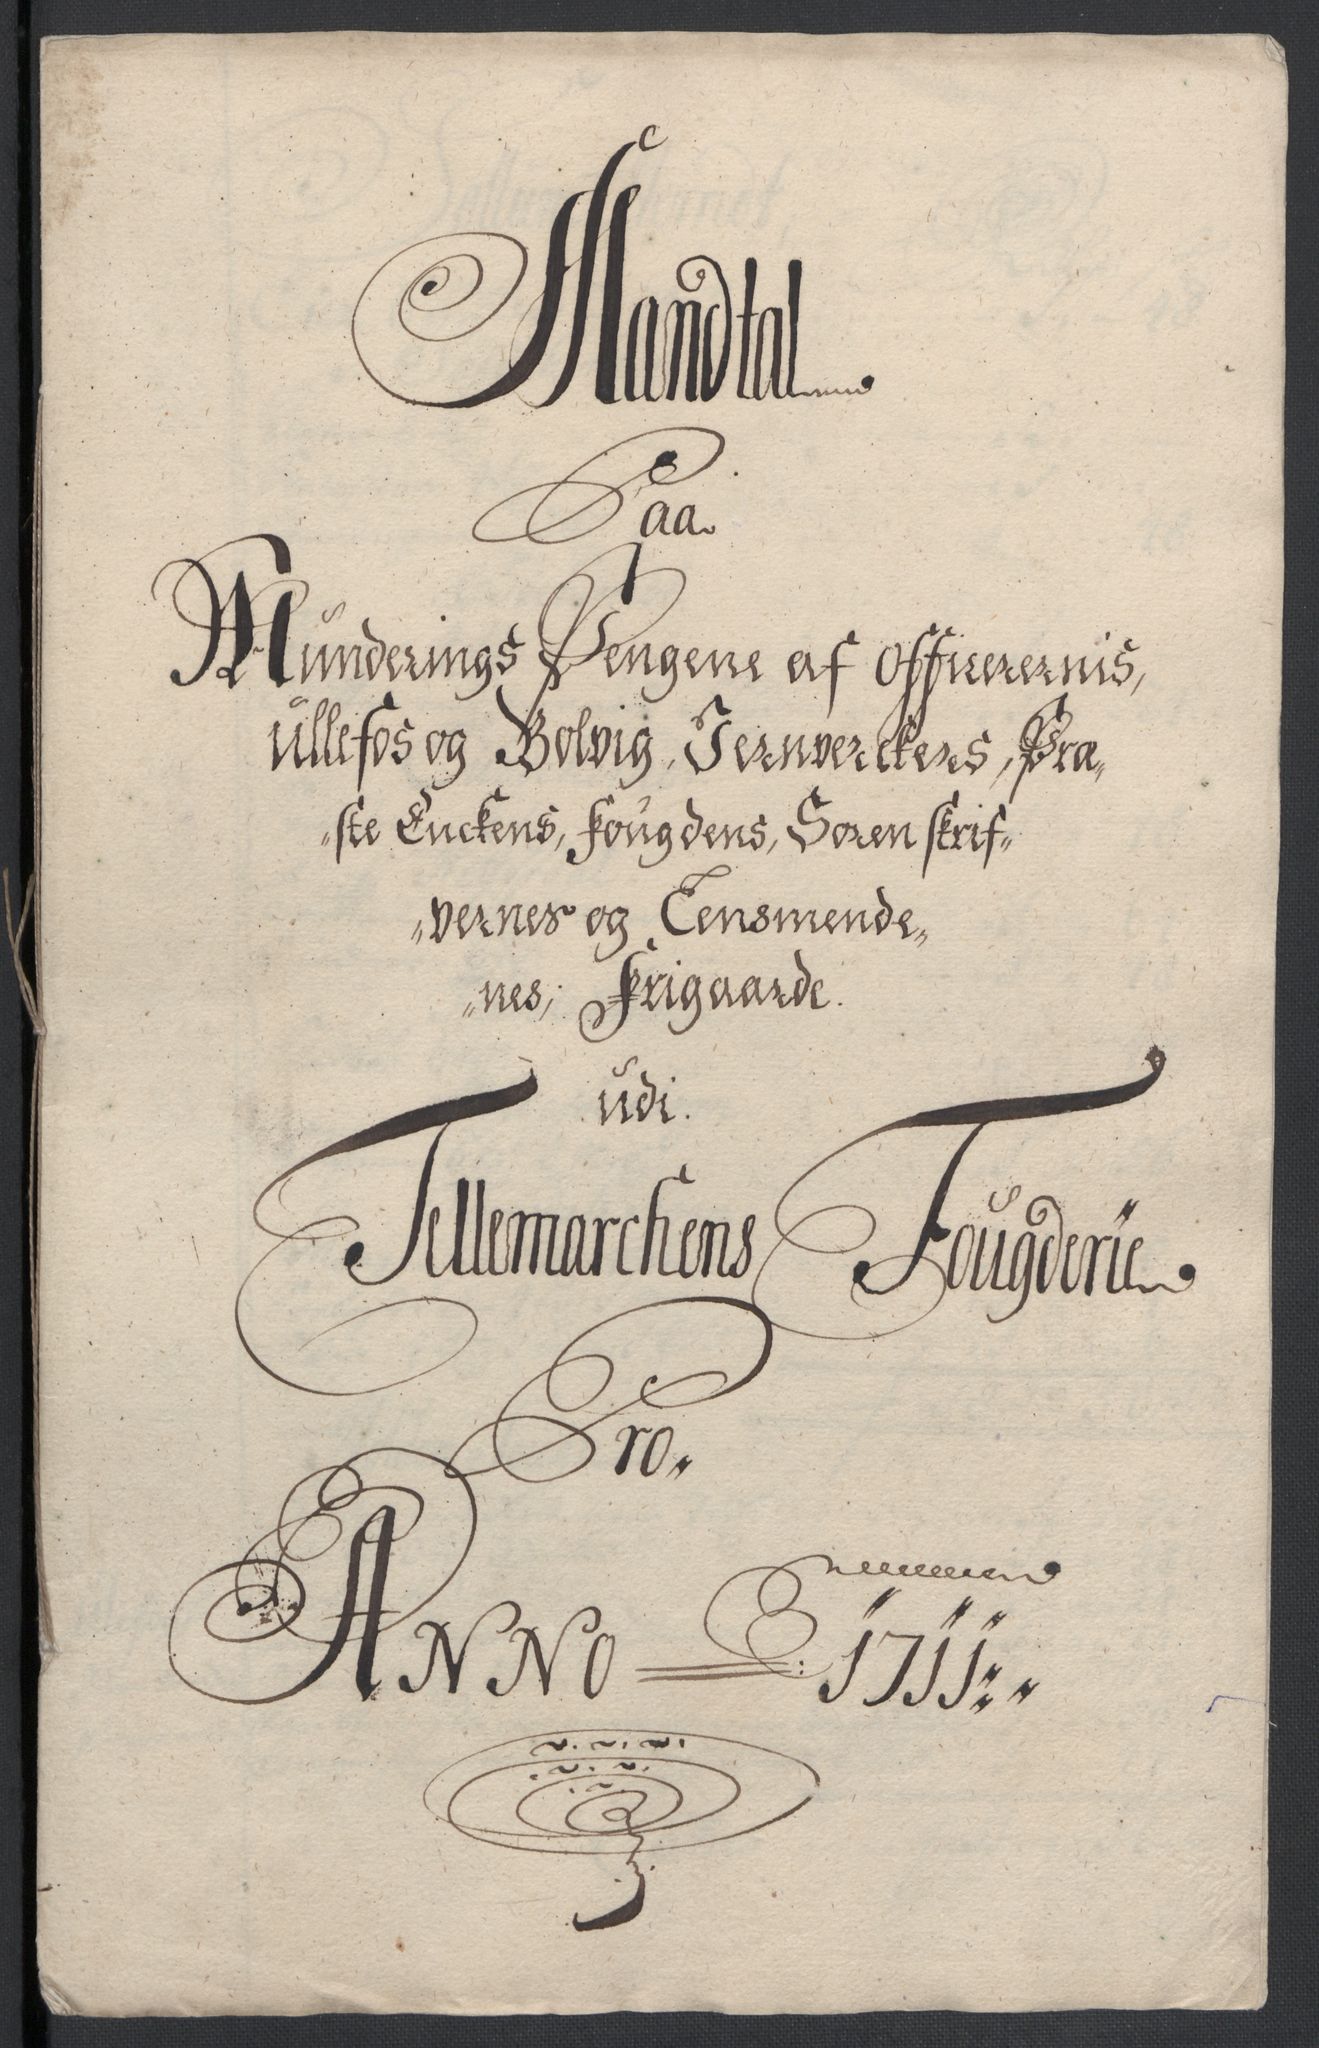 Mandtal
Paa
Munderings Pengene af Officerernis,
Ullefos og Bolvig, Jernverckers, Præ„
„ste Enckens, Fougdens, Soren skrif„
„vernes og Lensmende„
„nes, Frigaarde.
udi.
Tellemarchens Fougderie
Pro„
ANNO = : 1711